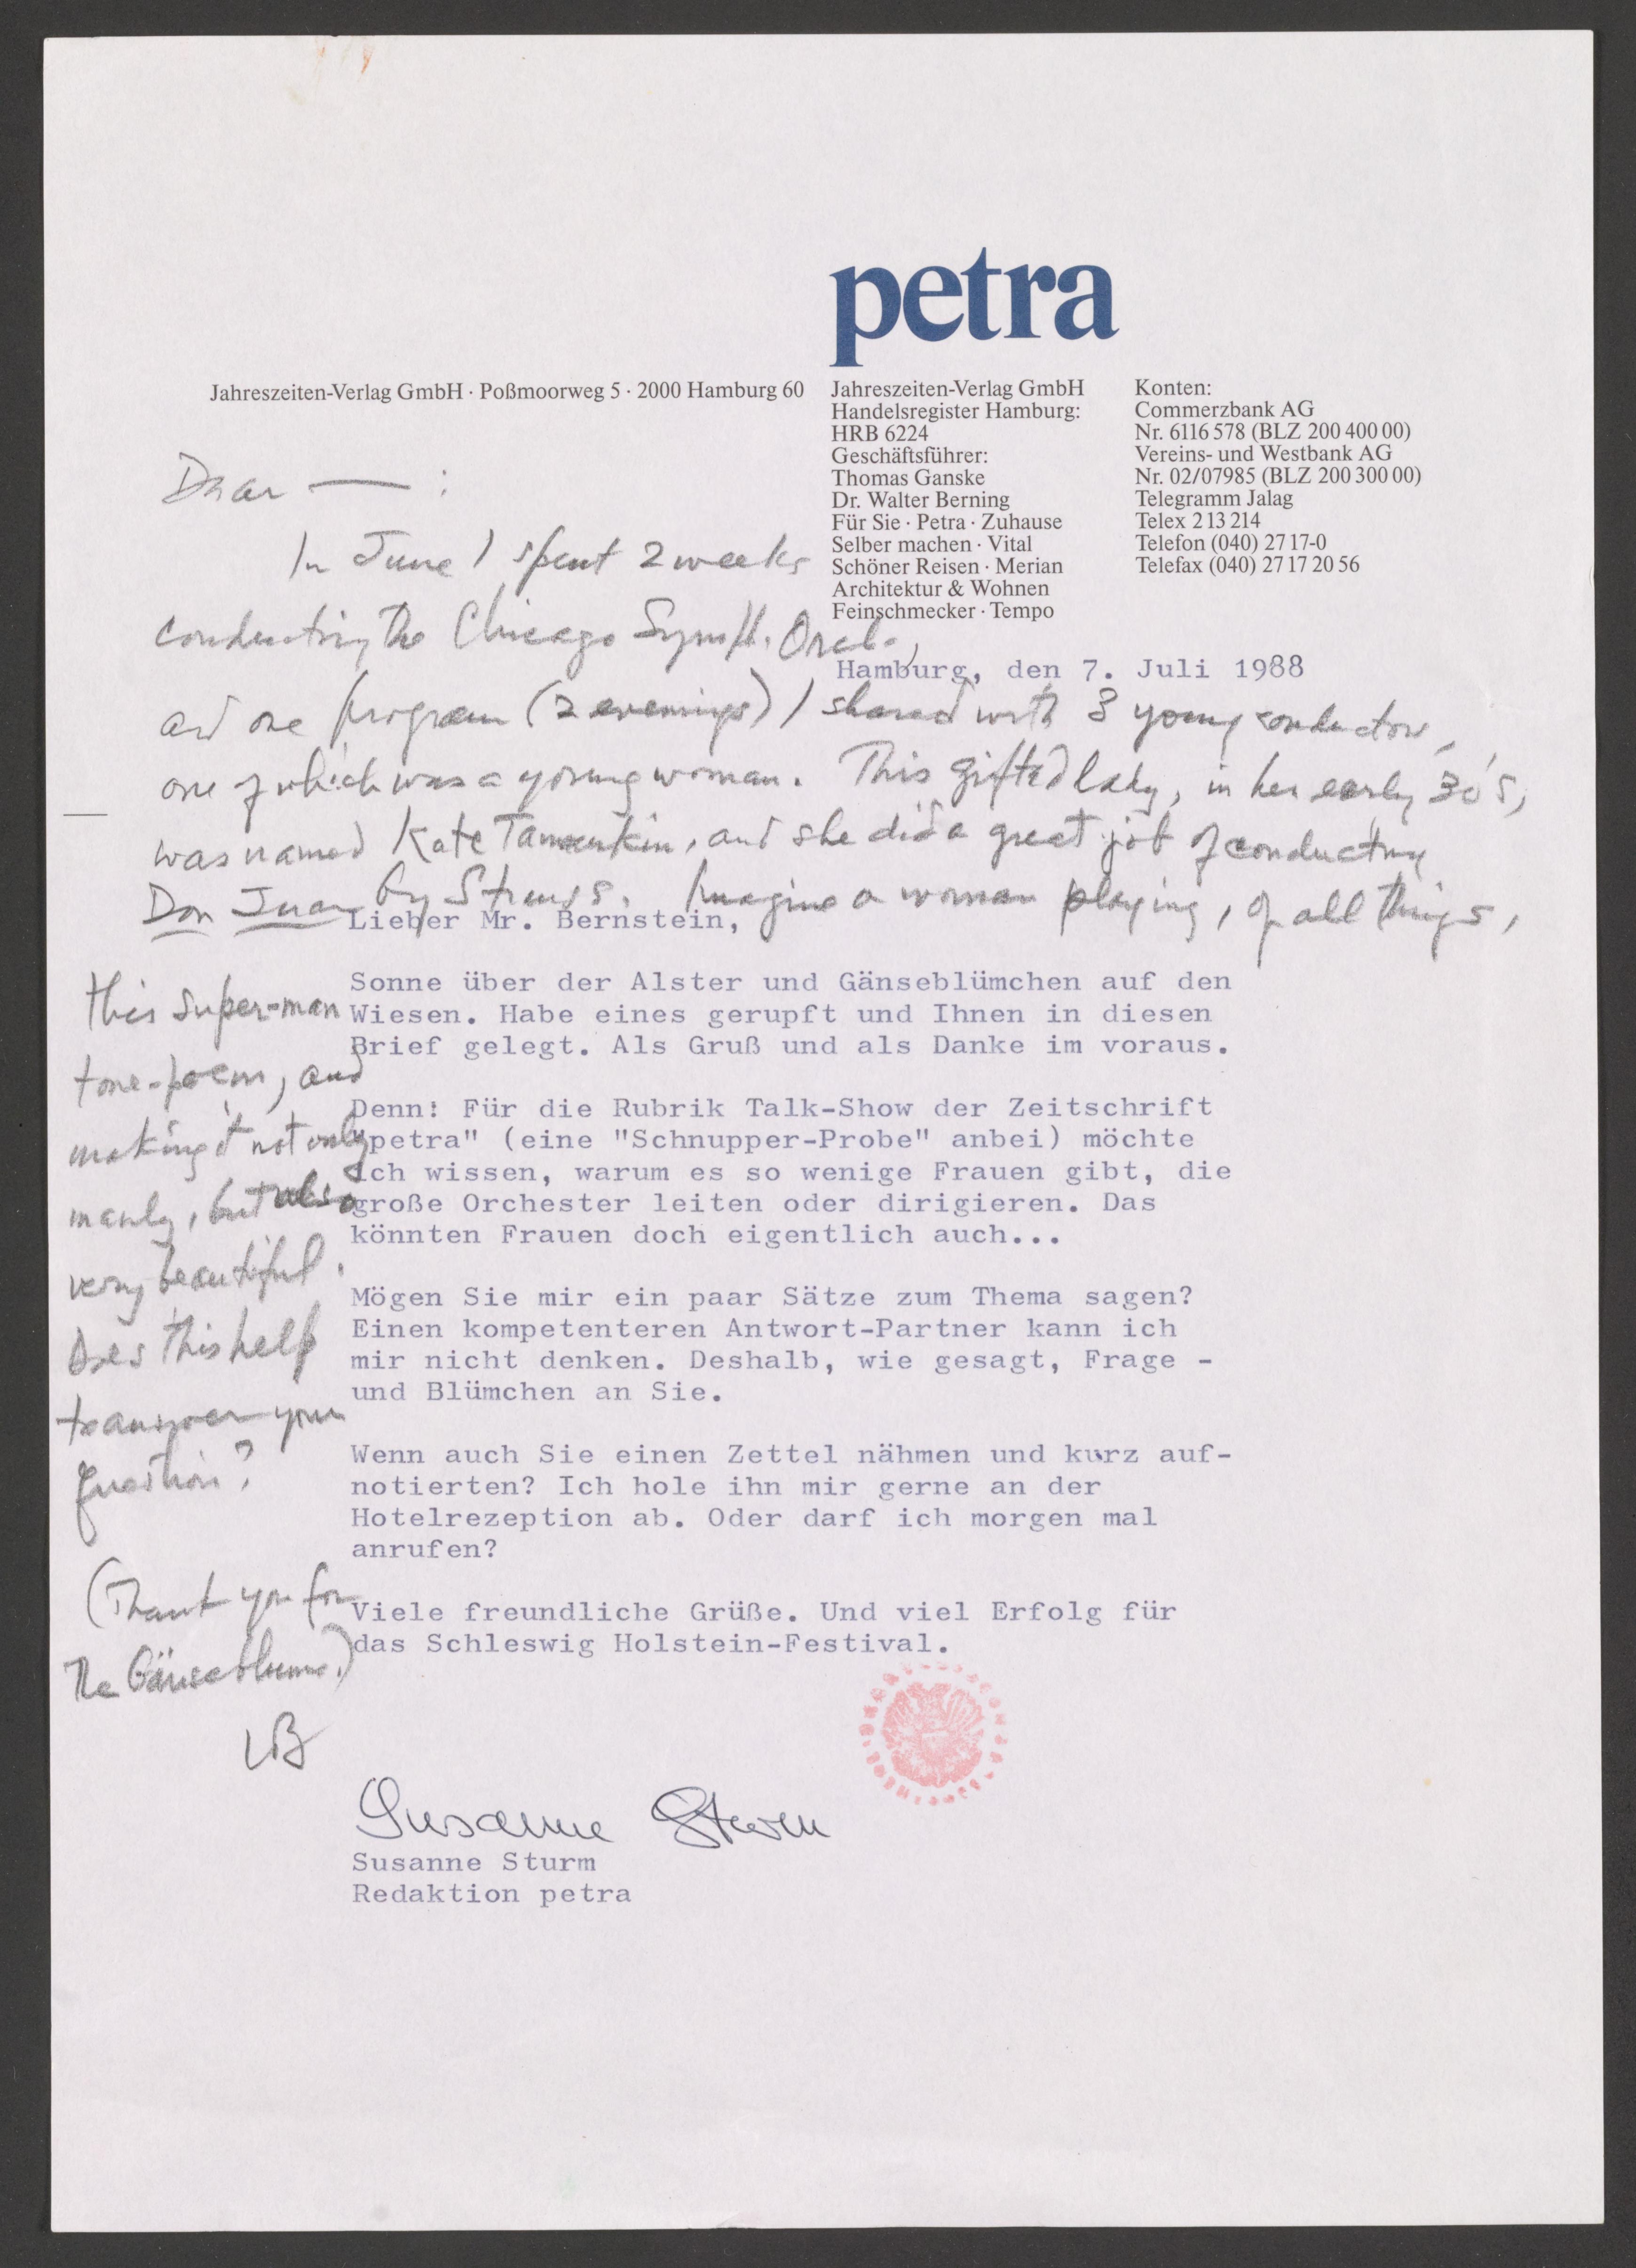 petra
Jahreszeiten-Verlag GmbH · Poßmoorweg 5 · 2000 Hamburg 60
Jahreszeiten-Verlag GmbH
Handelsregister Hamburg:
HRB 6224
Geschäftsführer:
Thomas Ganske
Dr. Walter Berning
Für Sie · Petra · Zuhause
Selber machen · Vital
Schöner Reisen · Merian
Architektur & Wohnen
Feinschmecker · Tempo
Konten:
Commerzbank AG
Nr. 6116 578 (BLZ 200 400 00)
Vereins- und Westbank AG
Nr. 02/07985 (BLZ 200 300 00)
Telegramm Jalag
Telex 2 13 214
Telefon (040) 27 17-0
Telefax (040) 27 17 20 56
Dear — :
In June I spent 2 weeks
conducting the Chicago Symph. Orch.,
and one program (2 evenings) I shared with 3 young conductors,
one of which was a young woman. This gifted lady, in her early 30's,
was named Kate Tamarkin, and she did a great job of conducting
Don Juan by Strauss. Imagine a woman playing, of all things,
this super-man
tone-poem, and
making it not only
manly, but also
very beautiful.
Does this help
to answer your
question?
(Thank you for
the Gänseblume.)
LB
Hamburg, den 7. Juli 1988
Lieber Mr. Bernstein,
Sonne über der Alster und Gänseblümchen auf den
Wiesen. Habe eines gerupft und Ihnen in diesen
Brief gelegt. Als Gruß und als Danke im voraus.
Denn: Für die Rubrik Talk-Show der Zeitschrift
"petra" (eine "Schnupper-Probe" anbei) möchte
ich wissen, warum es so wenige Frauen gibt, die
große Orchester leiten oder dirigieren. Das
könnten Frauen doch eigentlich auch...
Mögen Sie mir ein paar Sätze zum Thema sagen?
Einen kompetenteren Antwort-Partner kann ich
mir nicht denken. Deshalb, wie gesagt, Frage -
und Blümchen an Sie.
Wenn auch Sie einen Zettel nähmen und kurz auf-
notierten? Ich hole ihn mir gerne an der
Hotelrezeption ab. Oder darf ich morgen mal
anrufen?
Viele freundliche Grüße. Und viel Erfolg für
das Schleswig Holstein-Festival.
Susanne Sturm
Susanne Sturm
Redaktion petra